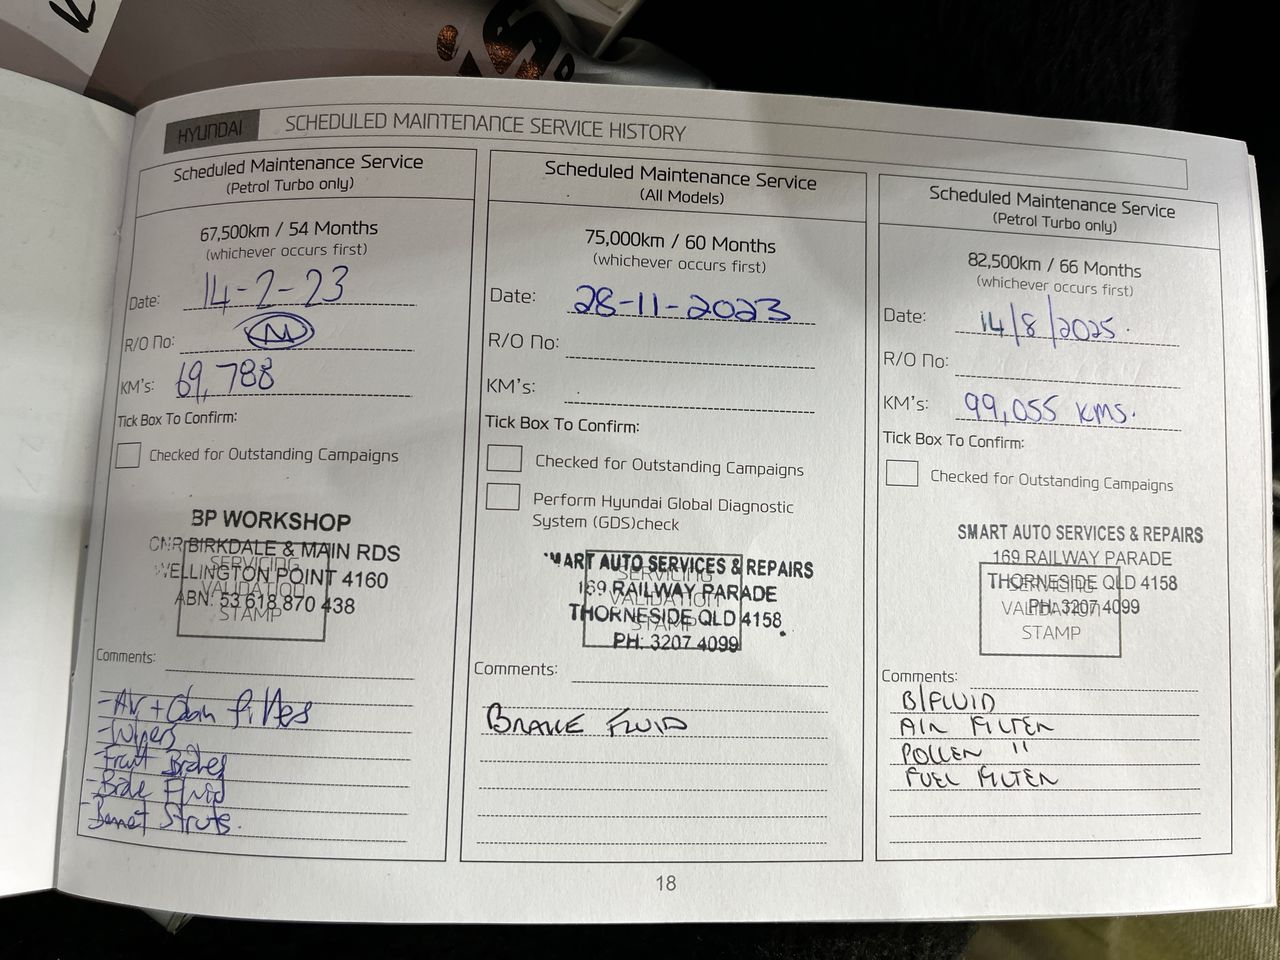 HYUNDAI
SCHEDULED MAINTENANCE SERVICE HISTORY
Scheduled Maintenance Service
(Petrol Turbo only)
67,500km / 54 Months
(whichever occurs first)
Date: 14-2-23
R/O No:
KM's: 69,788
Tick Box To Confirm:
Checked for Outstanding Campaigns
BP WORKSHOP
CNR BIRKDALE & MAIN RDS
WELLINGTON POINT 4160
ABN: 53 618 870 438
SERVICING
VALIDATION
STAMP
Comments:
- Air + Cabin filters
- Wipers
- Front Brakes
- Brake Fluid
- Bonnet Struts.
Scheduled Maintenance Service
(All Models)
75,000km / 60 Months
(whichever occurs first)
Date: 28-11-2023
R/O No:
KM's:
Tick Box To Confirm:
Checked for Outstanding Campaigns
Perform Hyundai Global Diagnostic
System (GDS)check
MART AUTO SERVICES & REPAIRS
169 RAILWAY PARADE
THORNESIDE QLD 4158
PH: 3207 4099
SERVICING
VALIDATION
STAMP
Comments:
BRAKE FLUID
Scheduled Maintenance Service
(Petrol Turbo only)
82,500km / 66 Months
(whichever occurs first)
Date: 14/8/2025.
R/O No:
KM's: 99,055 KMS.
Tick Box To Confirm:
Checked for Outstanding Campaigns
SMART AUTO SERVICES & REPAIRS
169 RAILWAY PARADE
THORNESIDE QLD 4158
PH: 3207 4099
SERVICING
VALIDATION
STAMP
Comments:
B/FLUID
AIR FILTER
POLLEN "
FUEL FILTER
18